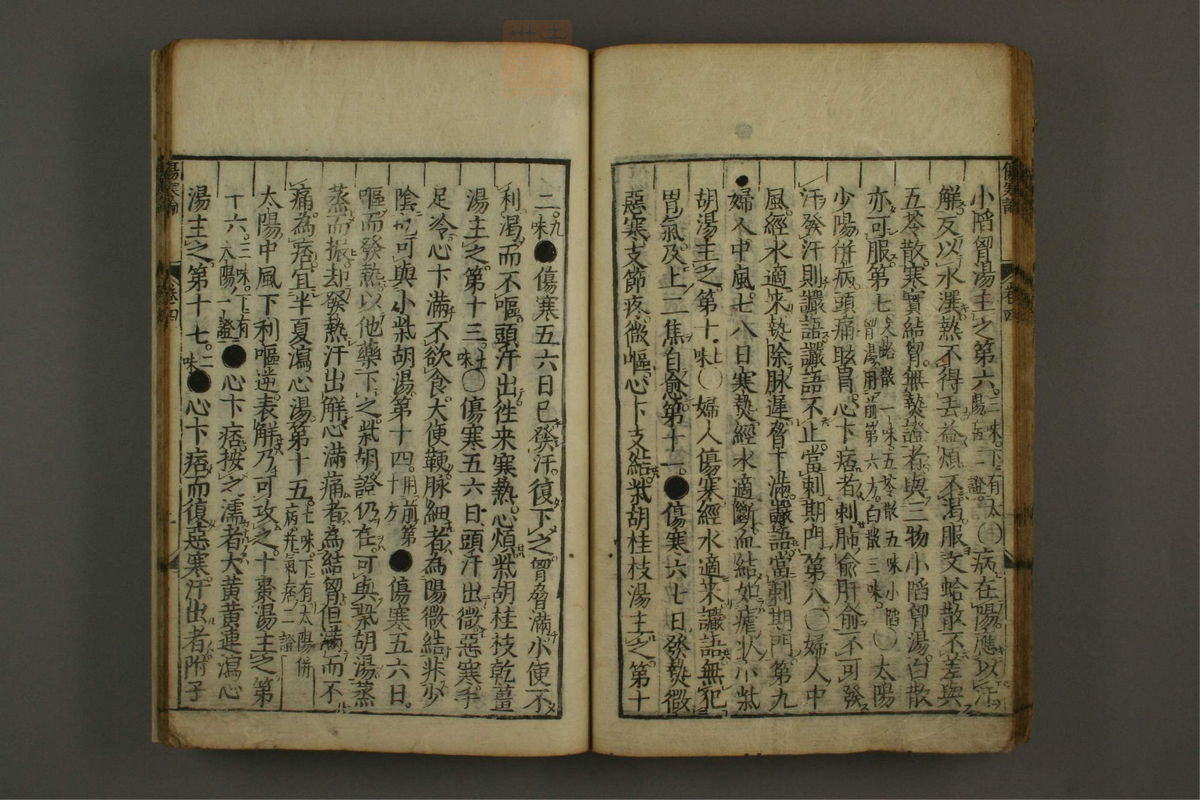 小䧟胷湯主之第六三味下有太陽病一證○病在陽應以汗
解反以水潠熱不得去益煩不渇服文蛤散不差與
五苓散寒實結胷無熱證者與三物小䧟胷湯白散
亦可服第七文蛤散一味五苓散五味小䧟胷湯用前第六方白散三味○太陽
少陽併病頭痛眩冒心下痞者刺肺俞肝俞不可發
汗發汗則讝語讝語不止當刺期門第八○婦人中
風經水適來熱除脉遲脅下滿讝語當刺期門第九
●婦人中風七八日寒熱經水適斷血結如瘧狀小柴
胡湯主之第十七味○婦人傷寒經水適來讝語無犯
胃氣及上二焦自愈第十一●傷寒六七日發熱微
惡寒支節疼微嘔心下支結柴胡桂枝湯主之第十
二九味●傷寒五六日已發汗復下之胷脅滿小便不
利渇而不嘔頭汗出徃來寒熱心煩柴胡桂枝乾薑
湯主之第十三七味○傷寒五六日頭汗出微惡寒手
足冷心下滿不欲食大便鞕脉細者為陽微結非少
陰也可與小柴胡湯第十四用前第十方●傷寒五六日
嘔而發熱以他藥下之柴胡證仍在可與柴胡湯蒸
蒸而振却發熱汗出解心滿痛者為結胷但滿而不
痛為痞宜半夏瀉心湯第十五七味下有太陽併病并氣痞二證
太陽中風下利嘔逆表解乃可攻之十棗湯主之第
十六三味下有太陽一證●心下痞按之濡者大黄黄連瀉心
湯主之第十七二味●心下痞而復惡寒汗出者附子
傷寒論
卷四
傷寒論
卷四